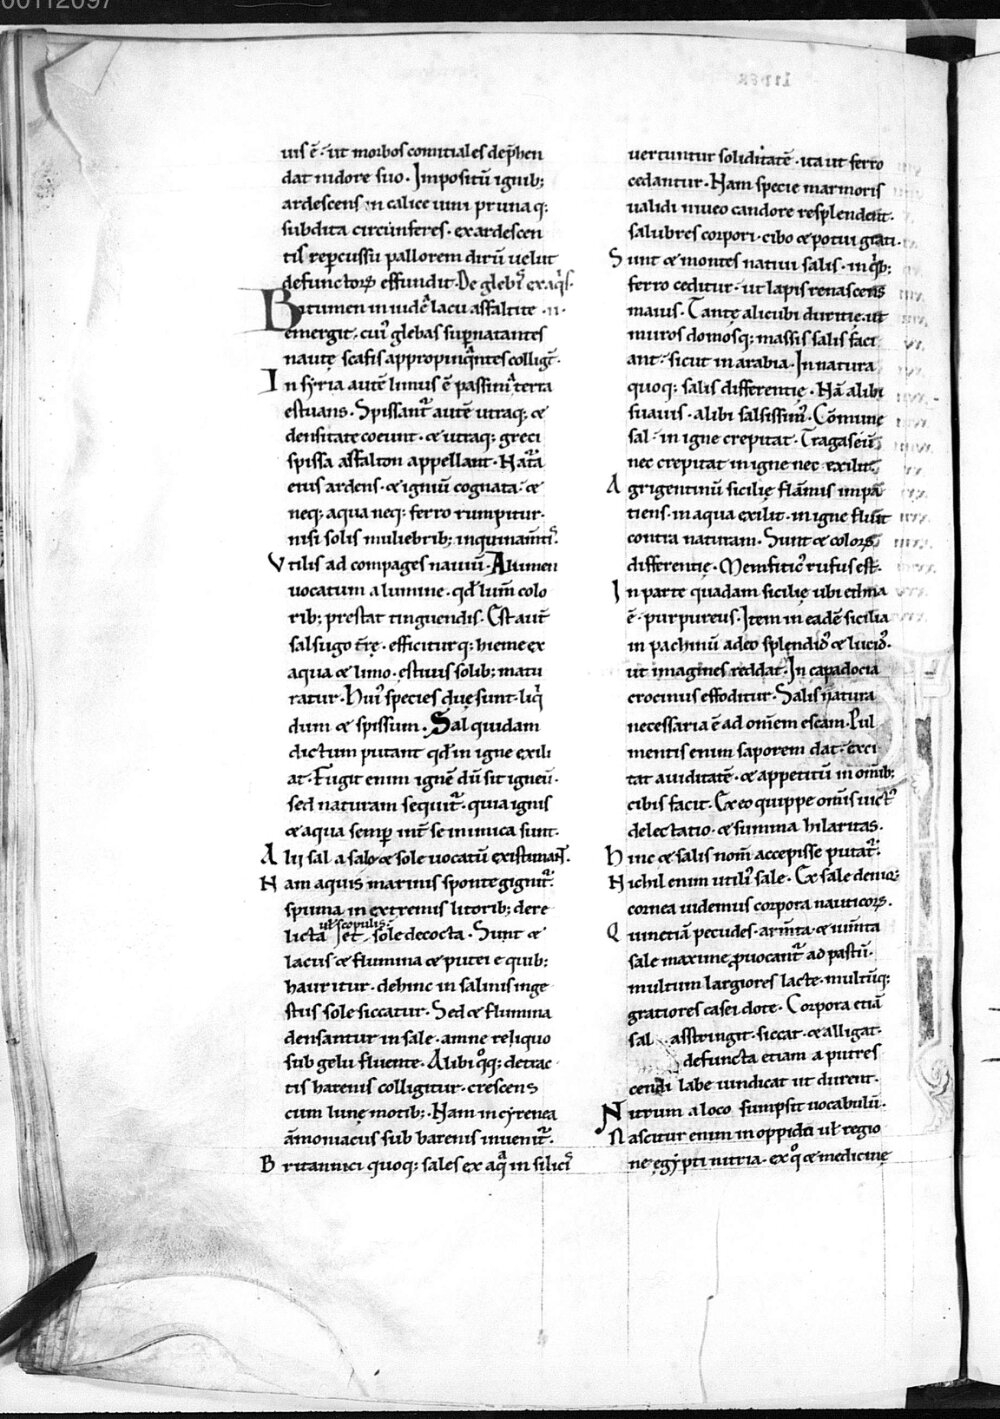 uis ē. ut morbos comitiales dep̄hen
dat nidore suo. Impositū ignib;
ardescens in calice uini prunaq;
subdita circūnferes. exardescen
tis repercussu pallorem dirū uelut
defunctoꝝ effundit. De gleb᷒ ex aq̄s.
Bitumen in iudeˀ lacu asfaltite .ii.
emergit. cui᷒ glebas sup̱natantes
nautę scafis appropinq̄ntes colligt̄.
In syria autē limus ē passim a terra
ęstuans. Spissant᷒ autē utraq; ⁊
densitate coeunt. ⁊ utraq; greci
spissa asfalton appellant. Nat᷒a
eius ardens. ⁊ igniū cognata. ⁊
neq; aqua neq; ferro rumpitur.
nisi solis muliebrib; inquinam̄tis.
Vtilis ad compages nauiū. Alumen
uocatum a lumine. qđ lum̄ colo
rib; prestat tinguendis. Est aut̄
salsugo t̄rę. efficiturq; hieme ex
aqua ⁊ limo. ęstiuis solib; matu
ratur. Hui᷒ species duę sunt. liq̄
dum ⁊ spissum. Sal quidam
dictum putant qđ in igne exili
at. Fugit enim ignē dū sit igneū.
sed naturam sequit᷒. quia ignis
⁊ aqua semp̱ int̄ se inimica sunt.
Alii sal a salo ⁊ sole uocatū existimant.
Nam aquis marinis sponte gignit᷒.
spuma in extremis litorib; dere
ul̄ scopulis;
licta et sole decocta. Sunt ⁊
lacus ⁊ flumina ⁊ putei e quib;
hauritur. dehinc in salinis inge
stus sole siccatur. Sed ⁊ flumina
densantur in sale. amne reliquo
sub gelu fluente. Alibi qͦq; detrac
tis harenis colligitur. crescens
cum lunę motib;. Nam in cyrenea
āmoniacus sub harenis inuenit᷒.
Britannici quoq; sales ex aq̄ in silici᷒
uertuntur soliditatē. ita ut ferro
cedantur. Nam specie marmoris
ualidi niueo candore resplendent.
salubres corpori. cibo ⁊ potui grati.
Sunt ⁊ montes natiui salis. in q̄b;
ferro ceditur. ut lapis renascens
maius. Tantę alicubi duritię. ut
muros domosq; massis salis faci
ant. sicut in arabia. In natura
quoq; salis differentię. Nā alibi
suauis. alibi salsissim᷒. Cōmune
sal. in igne crepitat. Tragaseū
nec crepitat in igne nec exilit.
Agrigentinū sicilię flāmis impa
tiens. in aqua exilit. in igne fluit
contra naturam. Sunt ⁊ coloꝝ
differentię. Memfitic᷒ rufus est.
In parte quadam sicilię ubi ethna
ē. purpureus. Item in eadē sicilia
in pachinū adeo splendid᷒ ⁊ lucid᷒.
ut imagines reddat. In capadocia
crocinus effoditur. Salis natura
necessaria ē ad om̄em escam. Pul
mentis enim saporem dat. exci
tat auiditatē. ⁊ appetitū in om̄ib;
cibis facit. Ex eo quippe om̄is uict᷒
delectatio. ⁊ summa hilaritas.
Hinc ⁊ salis nom̄ accepisse putat᷒.
Nichil enim utili᷒ sale. Ex sale deniq;
cornea uidemus corpora nauticoꝝ.
Quinetiā pecudes. arm̄ta. ⁊ ium̄ta
sale maxime ꝓuocant᷒ ad pastū.
multum largiores lacte. multūq;
gratiores casei dote. Corpora etiā
sal asstringit. siccat. ⁊ alligat.
defuncta etiam a putres
cendi labe uindicat ut durent.
Nitrum a loco sumpsit uocabulū.
Nascitur enim in oppido ul̄ regio
ne ęgypti nitria. ex qͦ ⁊ medicinę